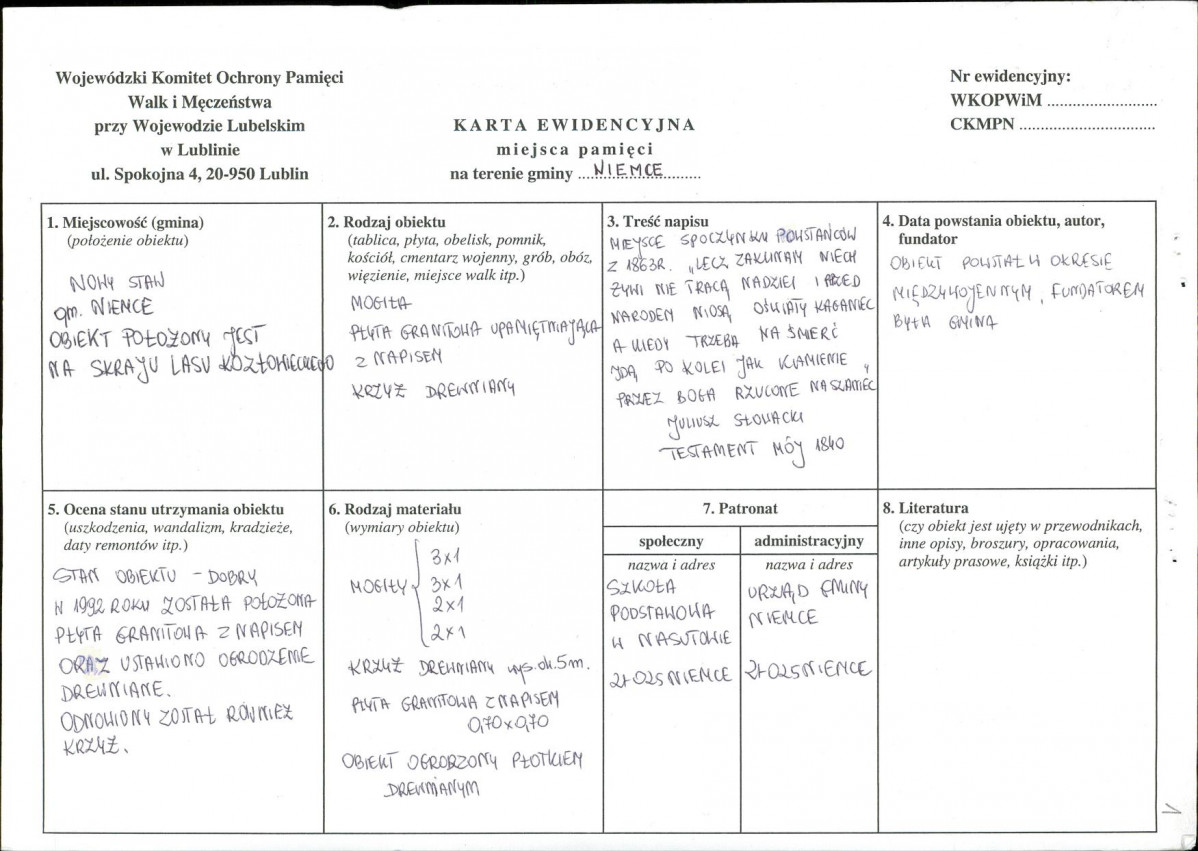 Wojewódzki Komitet Ochrony Pamięci
Walk i Męczeństwa
przy Wojewodzie Lubelskim
w Lublinie
ul. Spokojna 4, 20-950 Lublin
KARTA EWIDENCYJNA
miejsca pamięci
na terenie gminy ....NIEMCE.........
Nr ewidencyjny:
WKOPWiM ..........................
CKMPN ................................
1. Miejscowość (gmina)
(położenie obiektu)
NOWY STAW
gm. NIEMCE
OBIEKT POŁOŻONY JEST
NA SKRAJU LASU KOZŁOWIECKIEGO
2. Rodzaj obiektu
(tablica, płyta, obelisk, pomnik,
kościół, cmentarz wojenny, grób, obóz,
więzienie, miejsce walk itp.)
MOGIŁA
PŁYTA GRANITOWA UPAMIĘTNIAJĄCA
Z NAPISEM
KRZYŻ DREWNIANY
3. Treść napisu
MIEJSCE SPOCZYNKU POWSTAŃCÓW
Z 1863R. „LECZ ZAKLINAM NIECH
ŻYWI NIE TRACĄ NADZIEI I PRZED
NARODEM NIOSĄ OŚWIATY KAGANIEC
A KIEDY TRZEBA NA ŚMIERĆ
IDĄ PO KOLEI JAK KAMIENIE
PRZEZ BOGA RZUCONE NA SZANIEC"
JULIUSZ SŁOWACKI
TESTAMENT MÓJ 1840
4. Data powstania obiektu, autor,
fundator
OBIEKT POWSTAŁ W OKRESIE
MIĘDZYWOJENNYM, FUNDATOREM
BYŁA GMINA
5. Ocena stanu utrzymania obiektu
(uszkodzenia, wandalizm, kradzieże,
daty remontów itp.)
STAN OBIEKTU – DOBRY
W 1992 ROKU ZOSTAŁA POŁOŻONA
PŁYTA GRANITOWA Z NAPISEM
ORAZ USTAWIONO OGRODZENIE
DREWNIANE.
ODNOWIONY ZOSTAŁ RÓWNIEŻ
KRZYŻ.
6. Rodzaj materiału
(wymiary obiektu)
MOGIŁY
3x1
3x1
2x1
2x1
KRZYŻ DREWNIANY wys. ok. 5m.
PŁYTA GRANITOWA Z NAPISEM
0,70x0,70
OBIEKT OGRODZONY PŁOTKIEM
DREWNIANYM
7. Patronat
społeczny
nazwa i adres
SZKOŁA
PODSTAWOWA
W NASUTOWIE
21-025 NIEMCE
administracyjny
nazwa i adres
URZĄD GMINY
NIEMCE
21-025 NIEMCE
8. Literatura
(czy obiekt jest ujęty w przewodnikach,
inne opisy, broszury, opracowania,
artykuły prasowe, książki itp.)